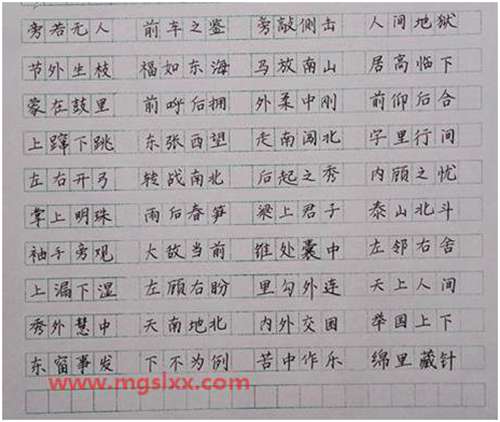 旁若无人 前车之鉴 旁敲侧击 人间地狱
节外生枝 福如东海 马放南山 居高临下
蒙在鼓里 前呼后拥 外柔中刚 前仰后合
上蹿下跳 东张西望 走南闯北 字里行间
左右开弓 转战南北 后起之秀 内顾之忧
掌上明珠 雨后春笋 梁上君子 泰山北斗
袖手旁观 大敌当前 锥处囊中 左邻右舍
上漏下湿 左顾右盼 里勾外连 天上人间
秀外慧中 天南地北 内外交困 举国上下
东窗事发 下不为例 苦中作乐 绵里藏针
www.mgslxx.com